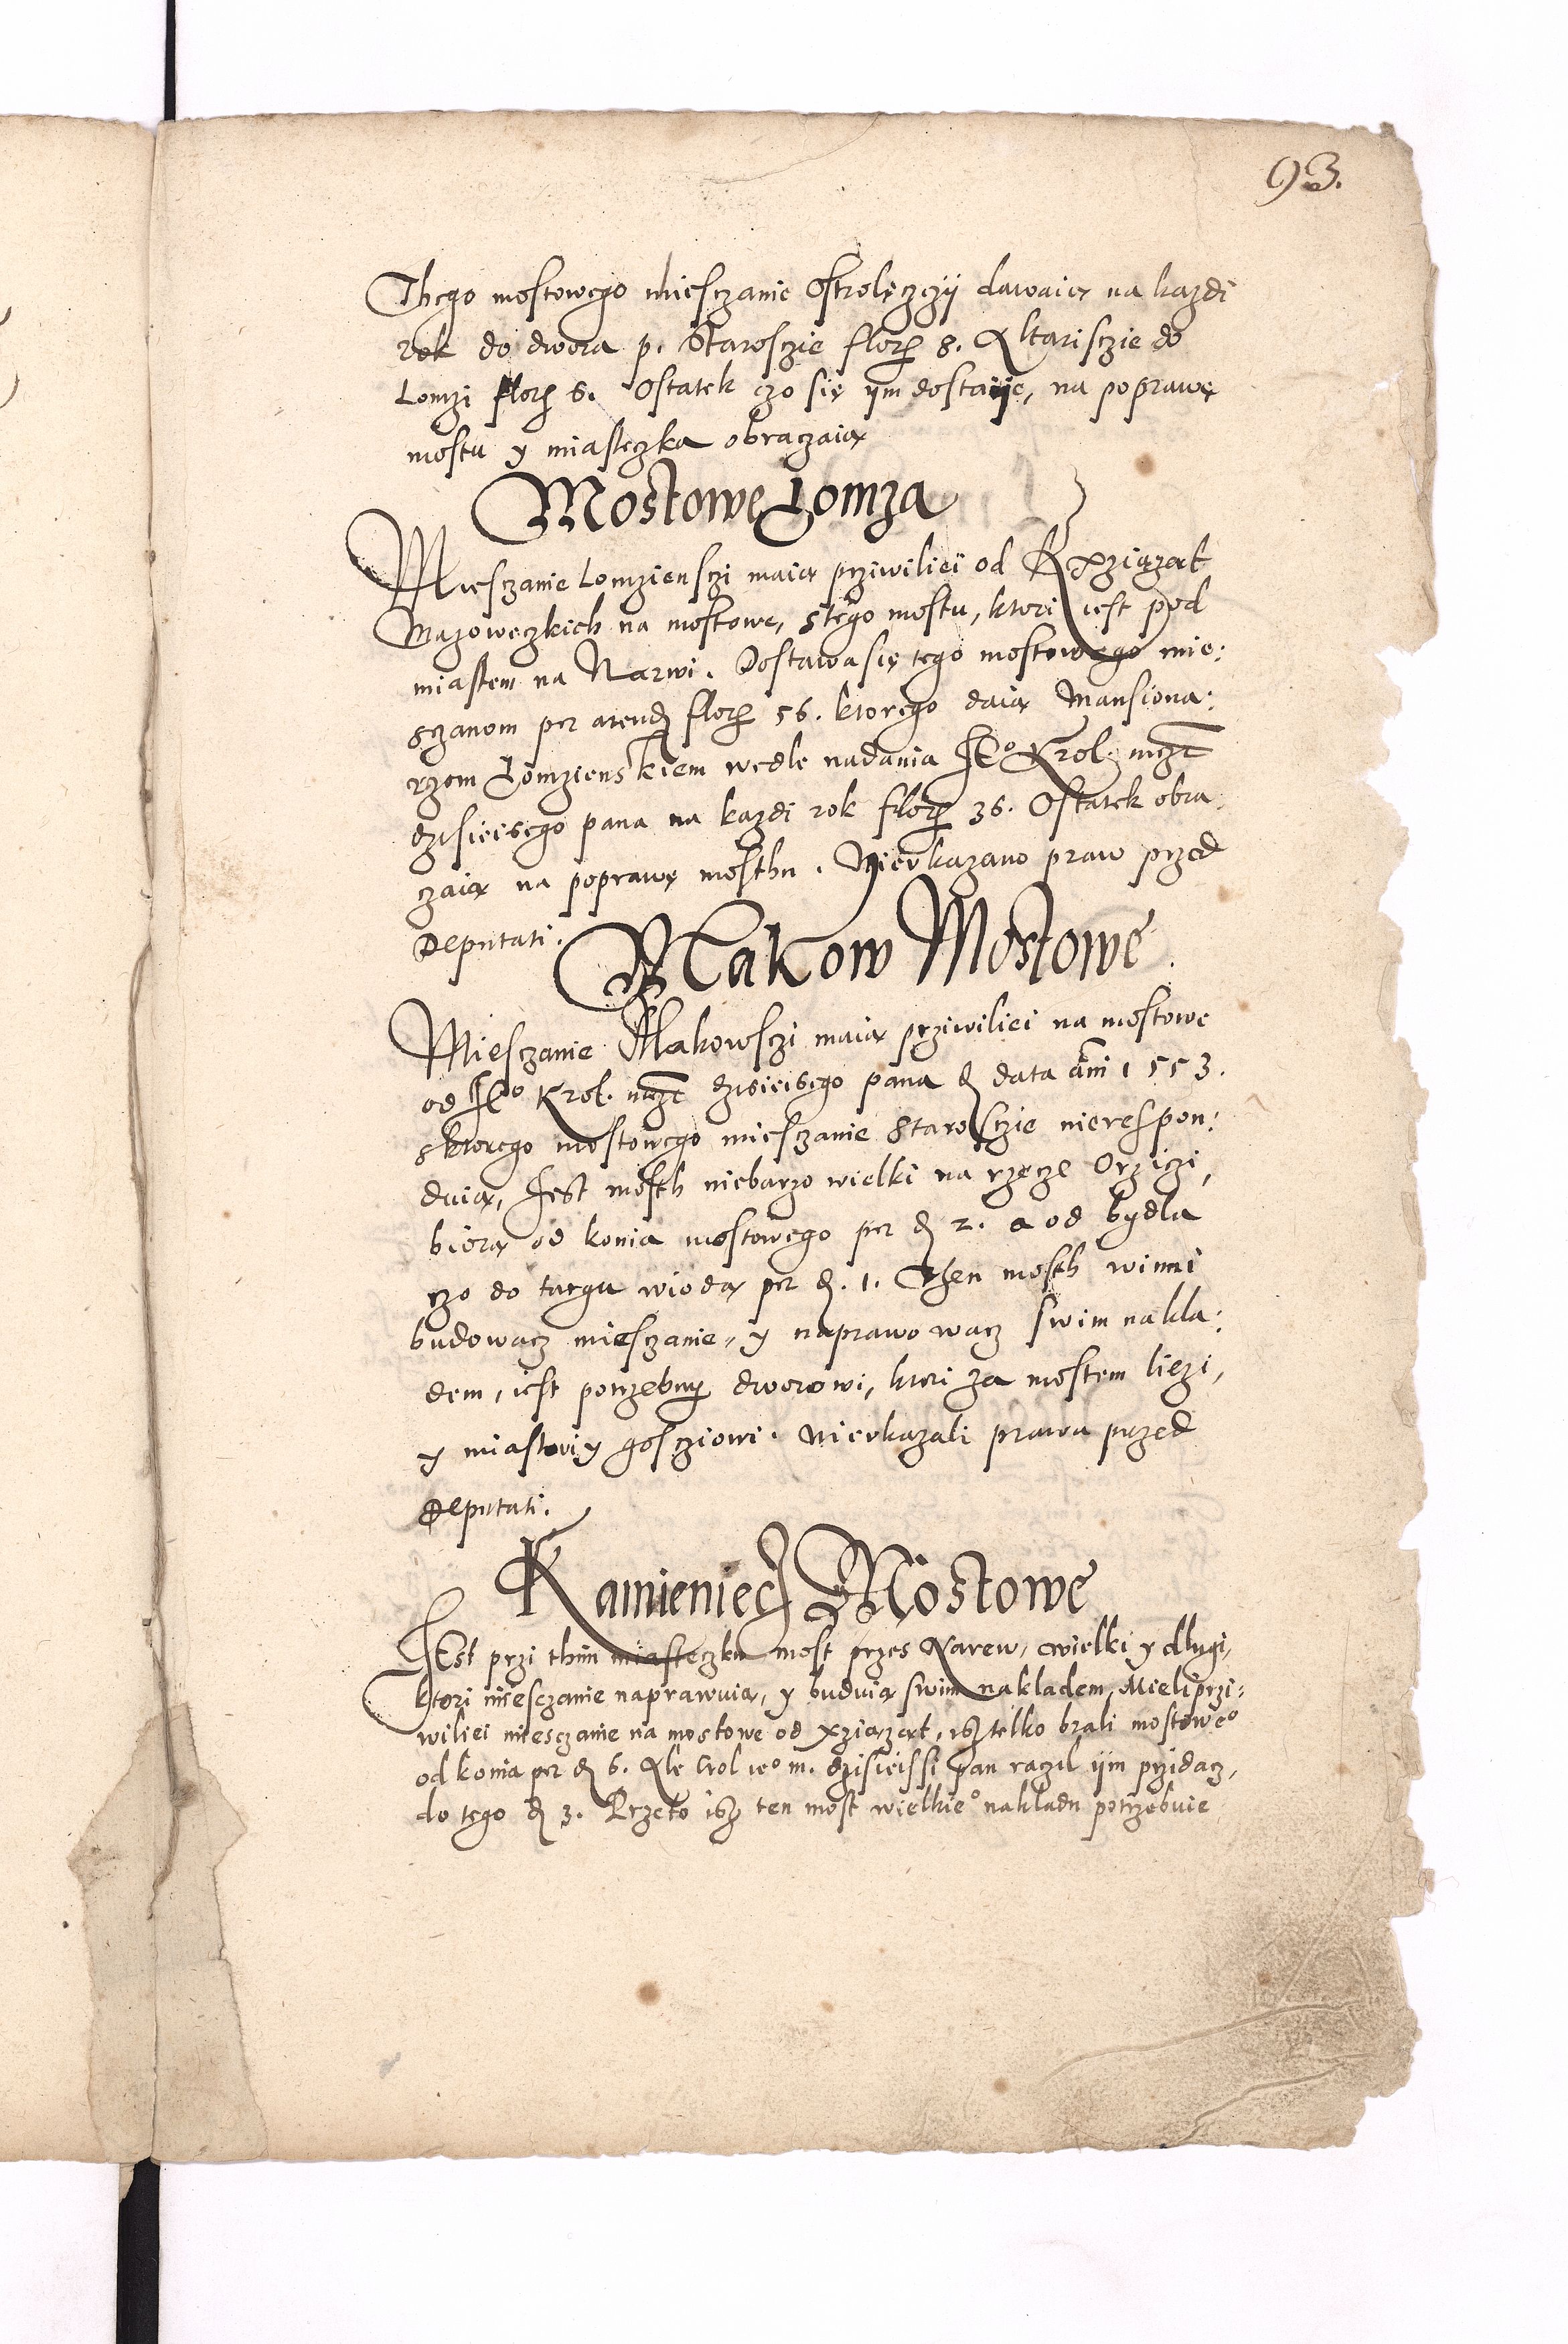 93.
Thego mostowego miesczanie Ostrolęczczÿ dawaią na kazdi
rok do dwora p. Starosczie flor. 8. Altarisczie do
Lomzi flor. 6. Ostatek czo się ym dostaÿe, na poprawę
mostu y miasteczka obraczaią
Mostowe Lomza
Miesczanie Lomzienſczi maią prziwiliei od Xziążąt
Mazoweczkich na mostowe, s tego mostu, ktori iest pod
miastem na Narwi. Dostawa się tego mostowego mie:
sczanom per arend. flor. 56. ktorego daią Mansiona:
rzom Lomzienskiem wedle nadania Jeº Krol. mczi
dzisieisego pana na kazdi rok flor. 36. Ostatek obra
czaią na poprawę mosthu. Nieukazano praw przed
Deputati.
Makow Mostowe
Miesczanie Makowſczi maią prziwiliei na mostowe
od Jeº Krol. mczi dzisieisego pana d data anni 1553.
s ktorego mostowego miesczanie Starosczie nierespon:
duią, Jest mosth niebarzo wielki na rzecze Orziczi,
biorą od konia mostowego per d 2. a od bydla
czo do targu wiodą per d. 1. Then mosth winni
budowacz miesczanie, y naprawowacz swim nakla:
dem, iest potrzebny dworowi, ktori za mostem liezi,
y miastu y gosczіowi. Nieukazali prawa przed
Deputati.
Kamieniecz Mostowe
JEst przi thim miasteczku most przes Narew, wielki y dlugi,
ktori miesczanie naprawuią, y buduią swim nakladem, Mieli przi:
wiliei miesczanie na mostowe od xziążąt, isz telko brali mostoweº
od konia per d 6. Ale Crol ieº m. dzisieissi pan raczil ÿm przidacz,
do tego d 3. Przeto isz ten most wielkieº nakladu potrzebuie